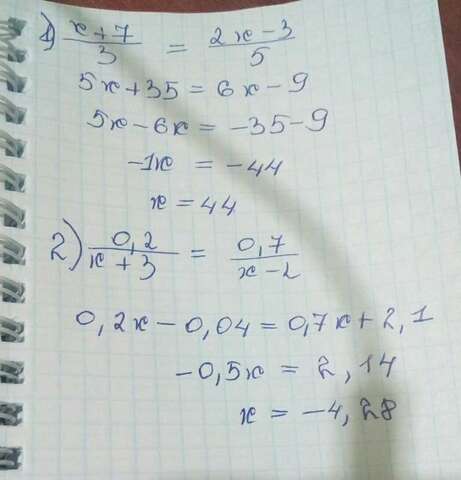 1) x+7/3 = 2x-3/5
5x+35 = 6x-9
5x-6x = -35-9
-1x = -44
x = 44
2) 0,2/x+3 = 0,7/x-2
0,2x-0,04 = 0,7x+2,1
-0,5x = 2,14
x = -4,28